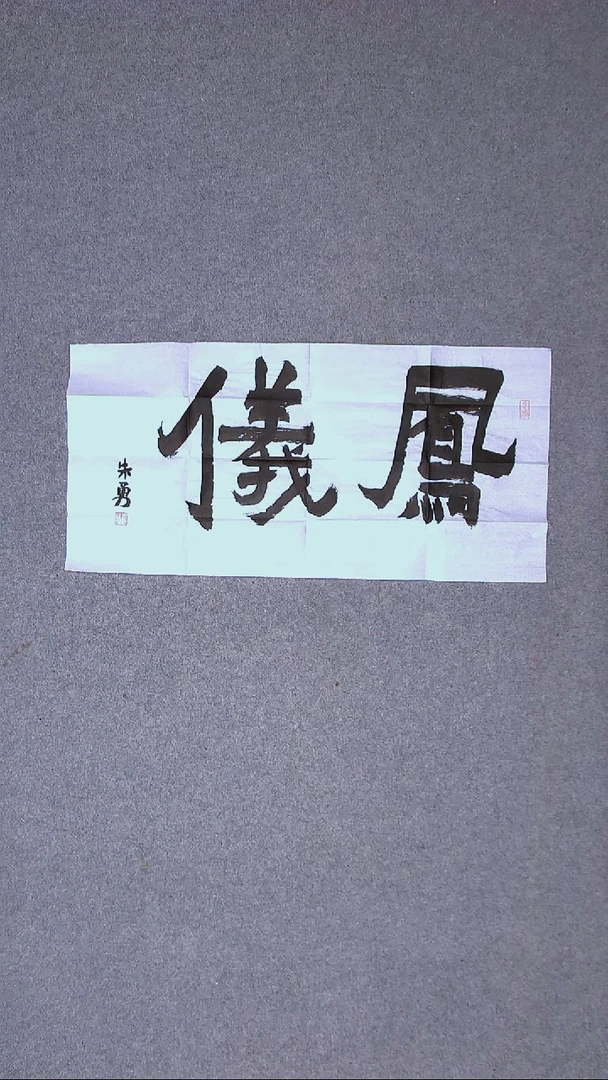 鳳儀
朱勇